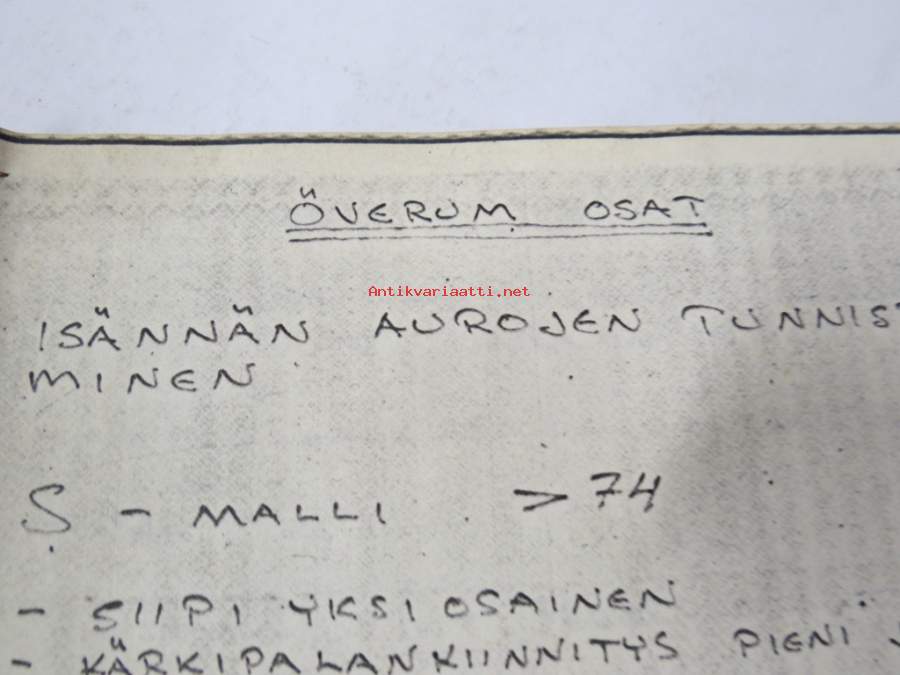 ÖVERUM OSAT
Antikvariaatti.net
ISÄNNÄN AUROJEN TUNNIST
MINEN
S - MALLI > 74
- SIIPI YKSIOSAINEN
- KÄRKIPALAN KIINNITYS PIENI